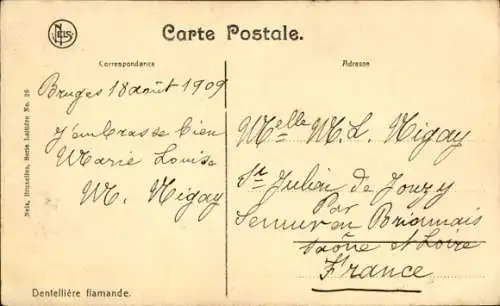 NELS
Carte Postale.
Correspondance
Adresse
Bruges 18 août 1909
J'embrasse bien
Marie Louise
M. Nigay
Melle M. L. Nigay
St Julien de Jonzy
Par
Semur en Brionnais
Saône et Loire
France
Nels, Bruxelles, Serie Laitière No. 26
Dentellière flamande.